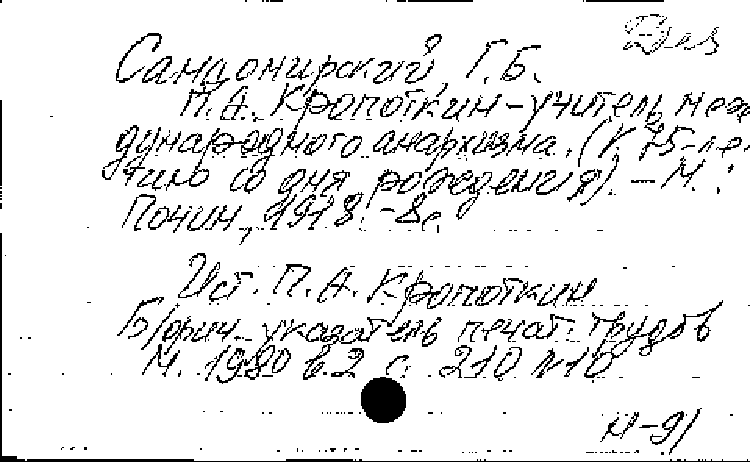 Дез
Сандомирский, Г.Б.
П.А. Кропоткин - учитель меж
дународного анархизма. (К 75-ле-
тию со дня рождения). - М.:
Почин, 1918. - 8с.
Ист. П.А. Кропоткин
Б/орич. указатель печат. трудов
М. 1980 в.2 с. 210 №10
М-91